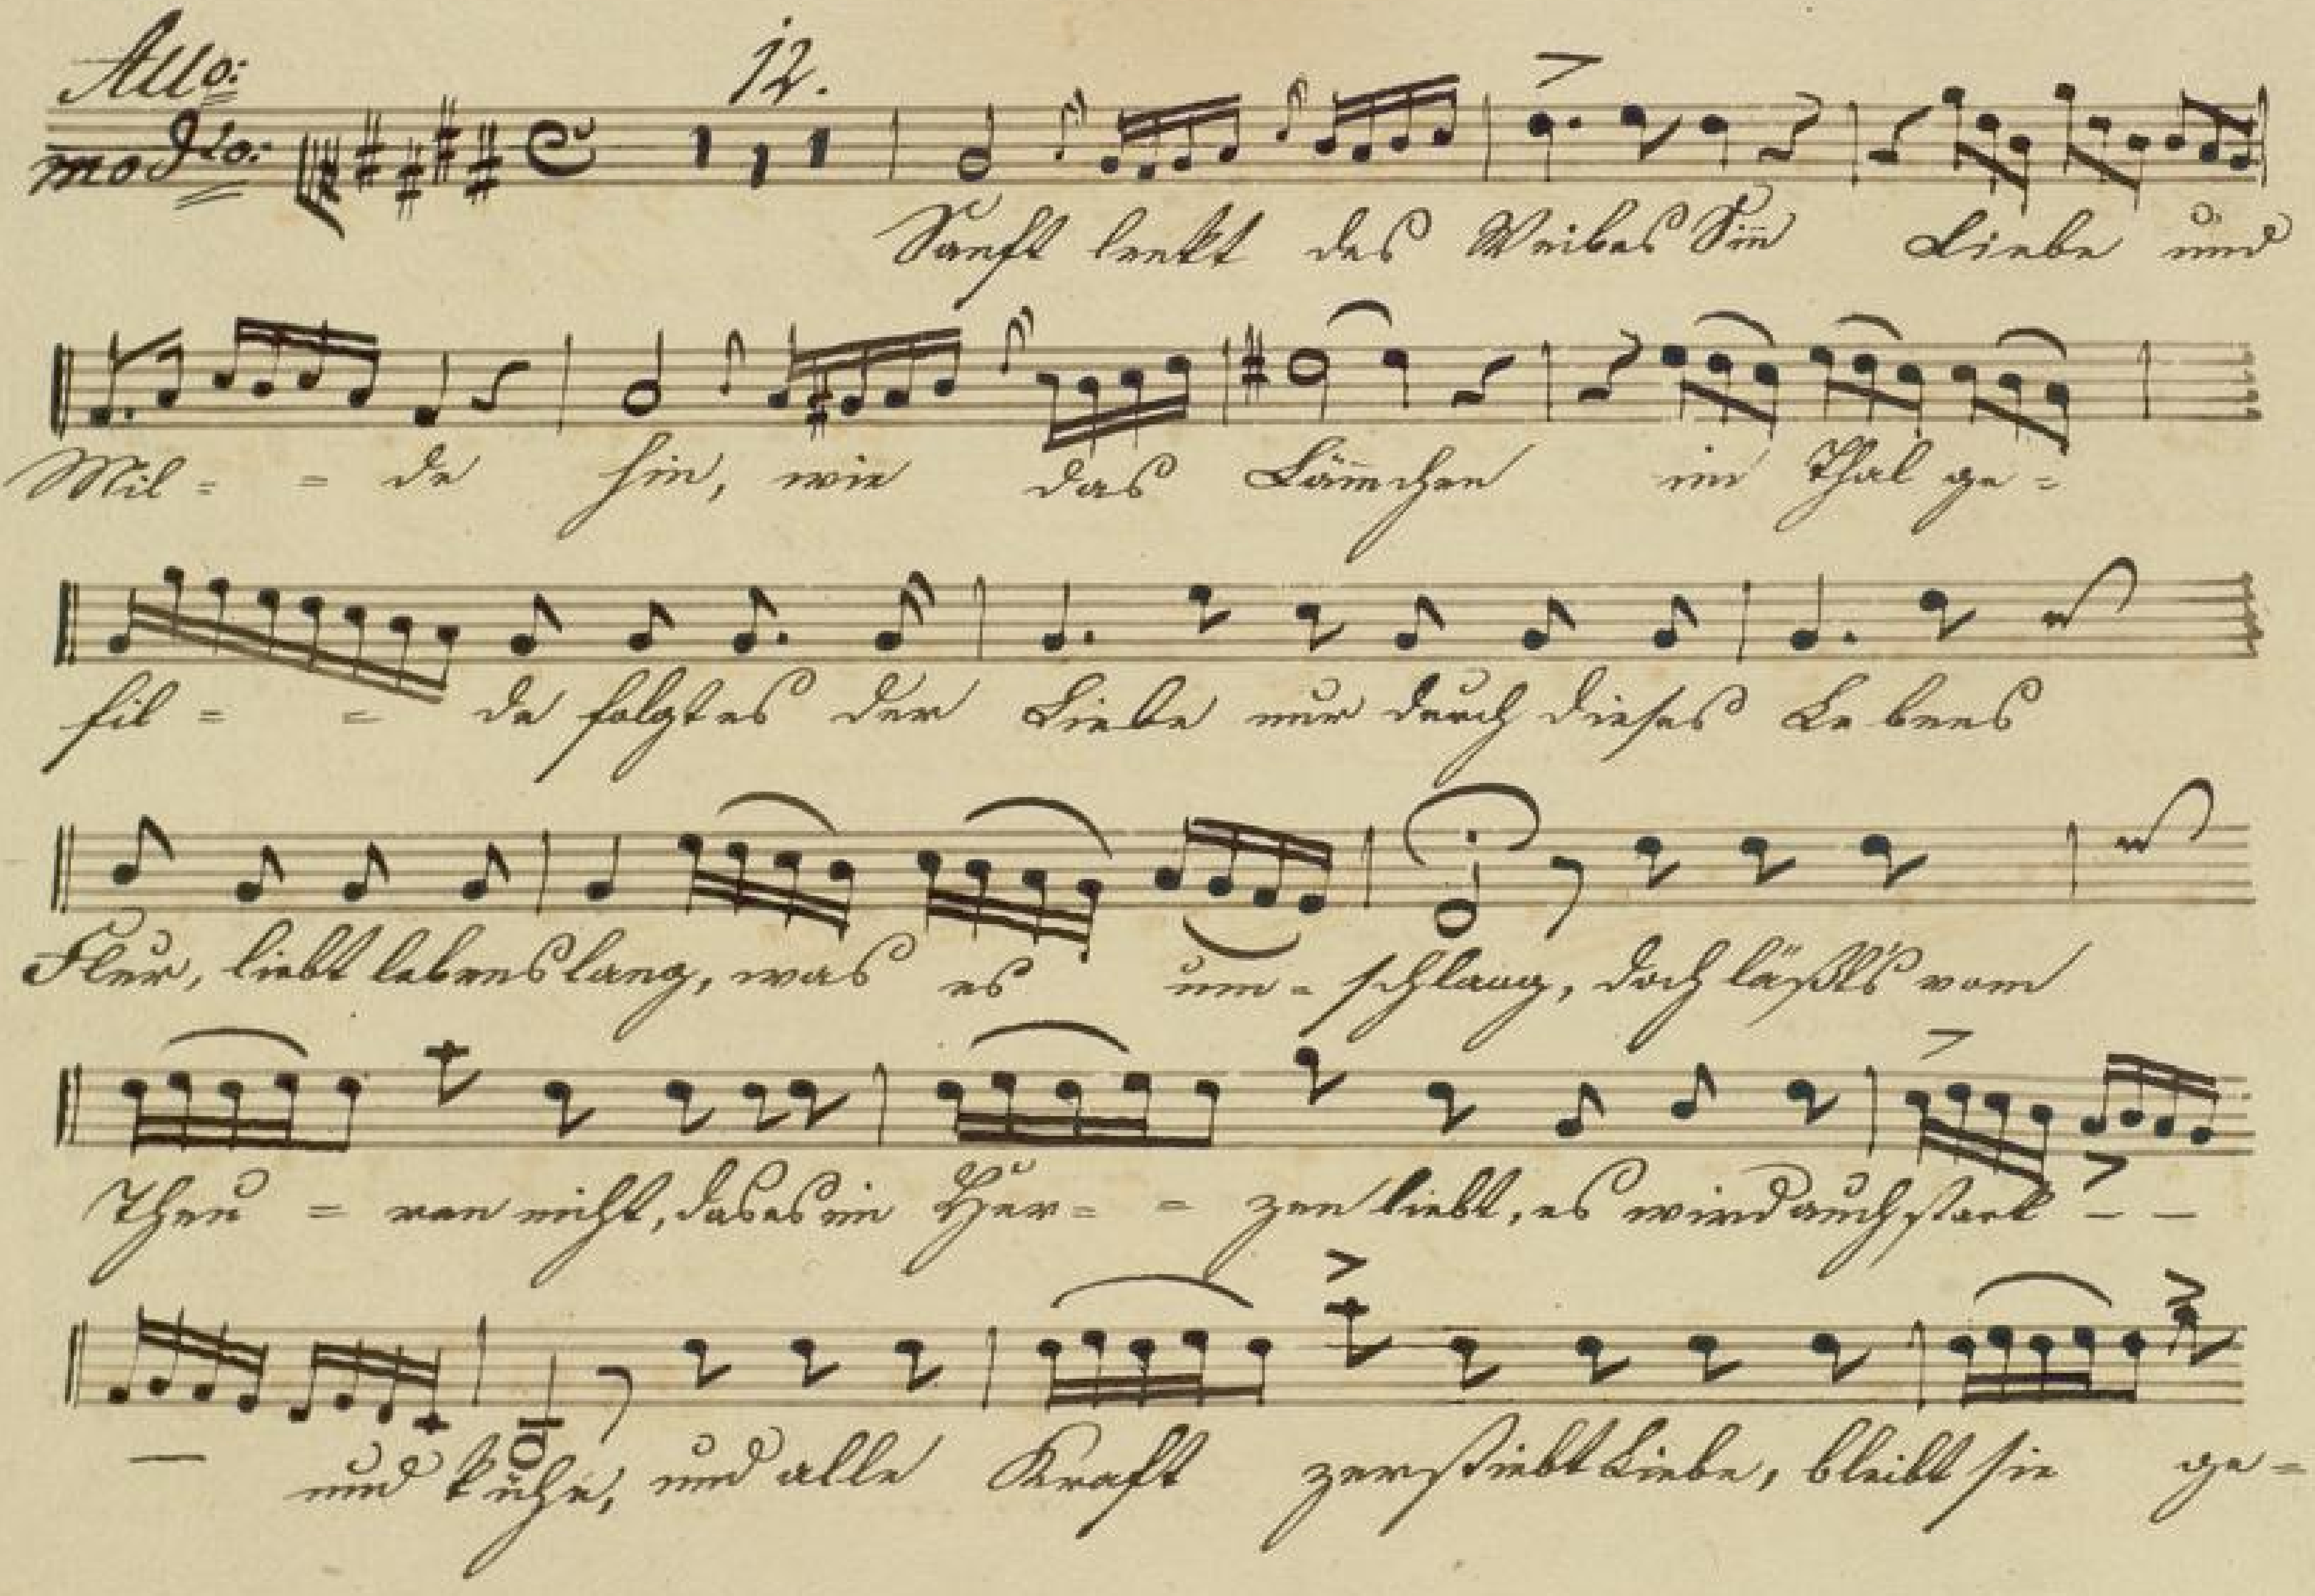 Allo:
modto:
12.
Sanft lenkt des Weibes Sin̄ Liebe und
Mil = = de hin, wie das Läm̄chen im Thal ge =
fil = = de folgt es der Liebe nur durch dieses Lebens
Flur, liebt lebenslang, was es um = schlang, doch läßt's vom
Theu = ren nicht, das es im Her = = zen liebt, es wird auch stark – –
— und kühn, und alle Kraft zerstiebt Liebe, bleibt sie ge =